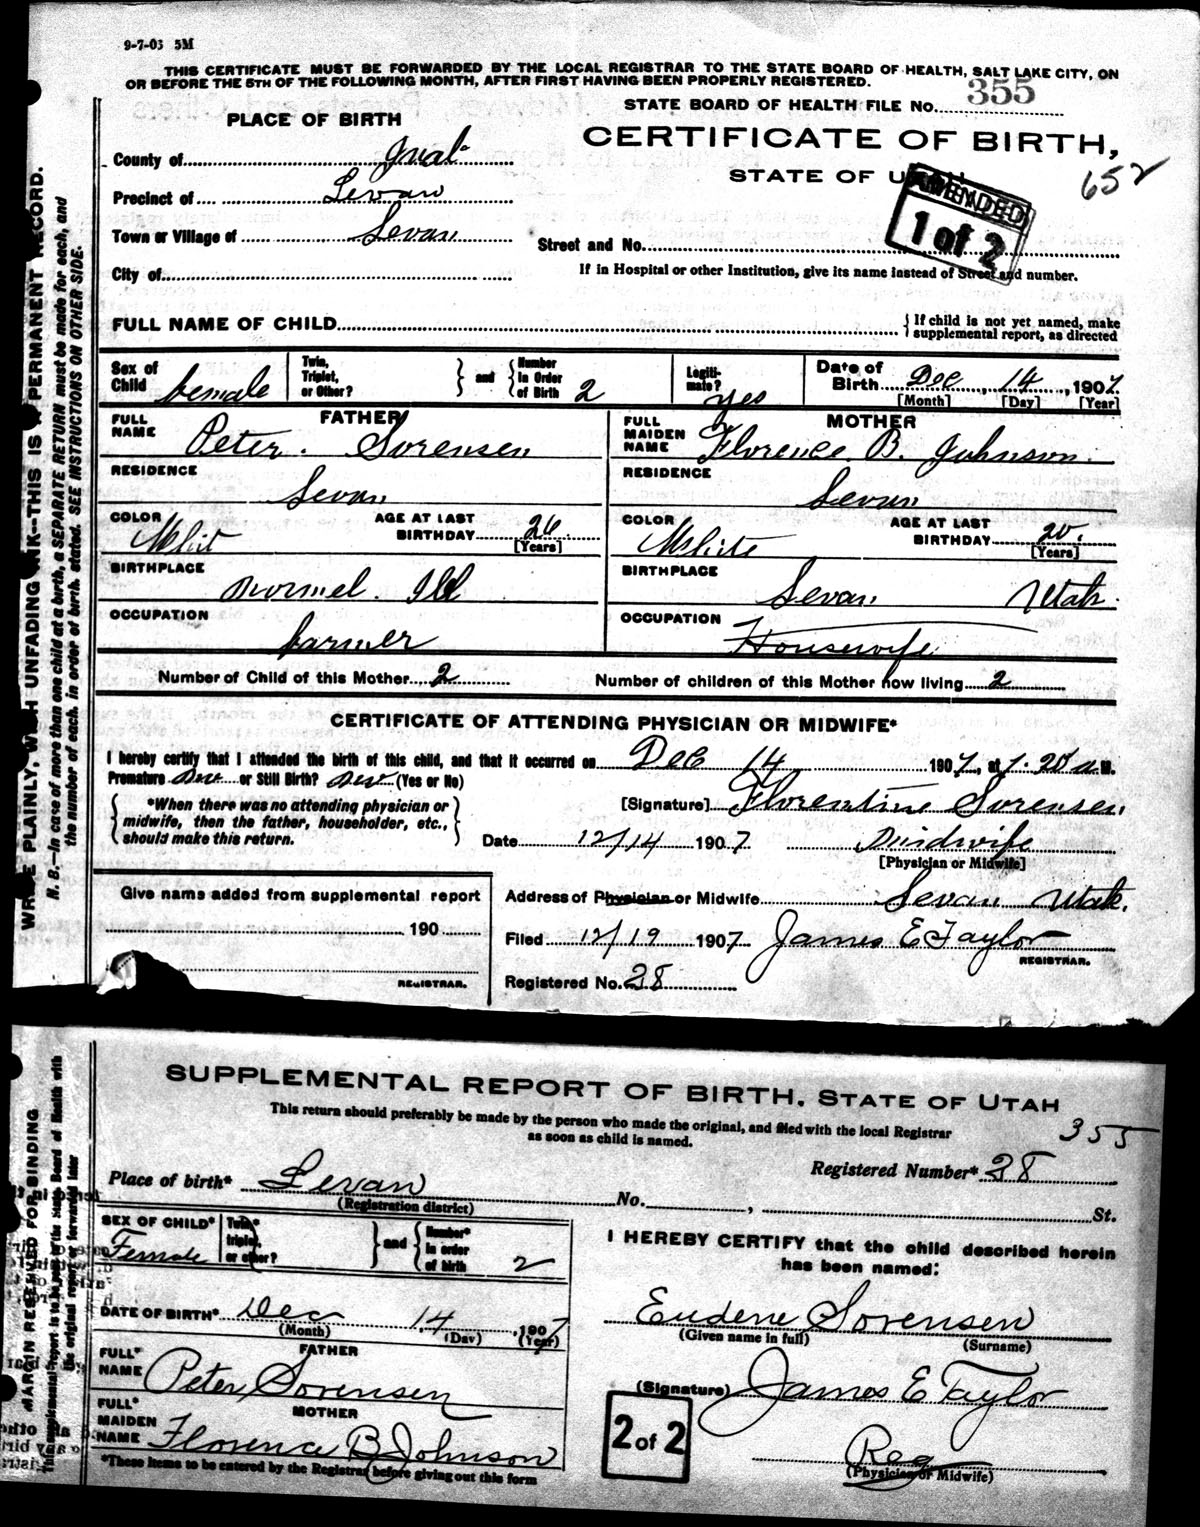 9-7-03 5M
THIS CERTIFICATE MUST BE FORWARDED BY THE LOCAL REGISTRAR TO THE STATE BOARD OF HEALTH, SALT LAKE CITY, ON
OR BEFORE THE 5TH OF THE FOLLOWING MONTH, AFTER FIRST HAVING BEEN PROPERLY REGISTERED.
STATE BOARD OF HEALTH FILE NO. 355
PLACE OF BIRTH
CERTIFICATE OF BIRTH,
STATE OF UTAH
652
AMENDED
1 of 2
County of Jual
Precinct of Levan
Town or Village of Levan
Street and No.
City of
If in Hospital or other Institution, give its name instead of Street and number.
FULL NAME OF CHILD
{ If child is not yet named, make
supplemental report, as directed
Sex of Child female
Twin, Triplet, or Other? } and { Number in Order of Birth 2
Legitimate? yes
Date of Birth Dec 14, 1907
[Month] [Day] [Year]
FATHER
FULL NAME Peter Sorensen
MOTHER
FULL MAIDEN NAME Florence B. Johnson
RESIDENCE Levan
RESIDENCE Levan
COLOR Whit AGE AT LAST BIRTHDAY 26 [Years]
COLOR White AGE AT LAST BIRTHDAY 20. [Years]
BIRTHPLACE Normel. Ill
BIRTHPLACE Levan Utah.
OCCUPATION farmer
OCCUPATION Housewife
Number of Child of this Mother 2
Number of children of this Mother now living 2
CERTIFICATE OF ATTENDING PHYSICIAN OR MIDWIFE*
I hereby certify that I attended the birth of this child, and that it occurred on Dec 14 1907, at 1.20 a.M.
Premature or Still Birth? (Yes or No)
{ *When there was no attending physician or
midwife, then the father, householder, etc.,
should make this return. }
[Signature] Florentine Sorensen
Date 12/14 1907 Midwife
[Physician or Midwife]
Give name added from supplemental report
190
REGISTRAR.
Address of Physician or Midwife Levan Utah.
Filed 12/19 1907 James E Taylor
REGISTRAR.
Registered No. 28
WRITE PLAINLY, WITH UNFADING INK--THIS IS A PERMANENT RECORD.
N. B.--In case of more than one child at a birth, a SEPARATE RETURN must be made for each, and
the number of each, in order of birth, stated. SEE INSTRUCTIONS ON OTHER SIDE.
SUPPLEMENTAL REPORT OF BIRTH, STATE OF UTAH
This return should preferably be made by the person who made the original, and filed with the local Registrar
as soon as child is named.
355
Registered Number* 28
Place of birth* Levan No. , St.
(Registration district)
SEX OF CHILD* Female
Twin,* triplet, or other? } and { Number* in order of birth 2
I HEREBY CERTIFY that the child described herein
has been named:
DATE OF BIRTH* Dec 14, 1907
(Month) (Day) (Year)
Eudene Sorensen
(Given name in full) (Surname)
FATHER
FULL* NAME Peter Sorensen
(Signature) James E Taylor
MOTHER
FULL* MAIDEN NAME Florence B Johnson
2 of 2
Reg
(Physician or Midwife)
*These items to be entered by the Registrar before giving out this form
MARGIN RESERVED FOR BINDING